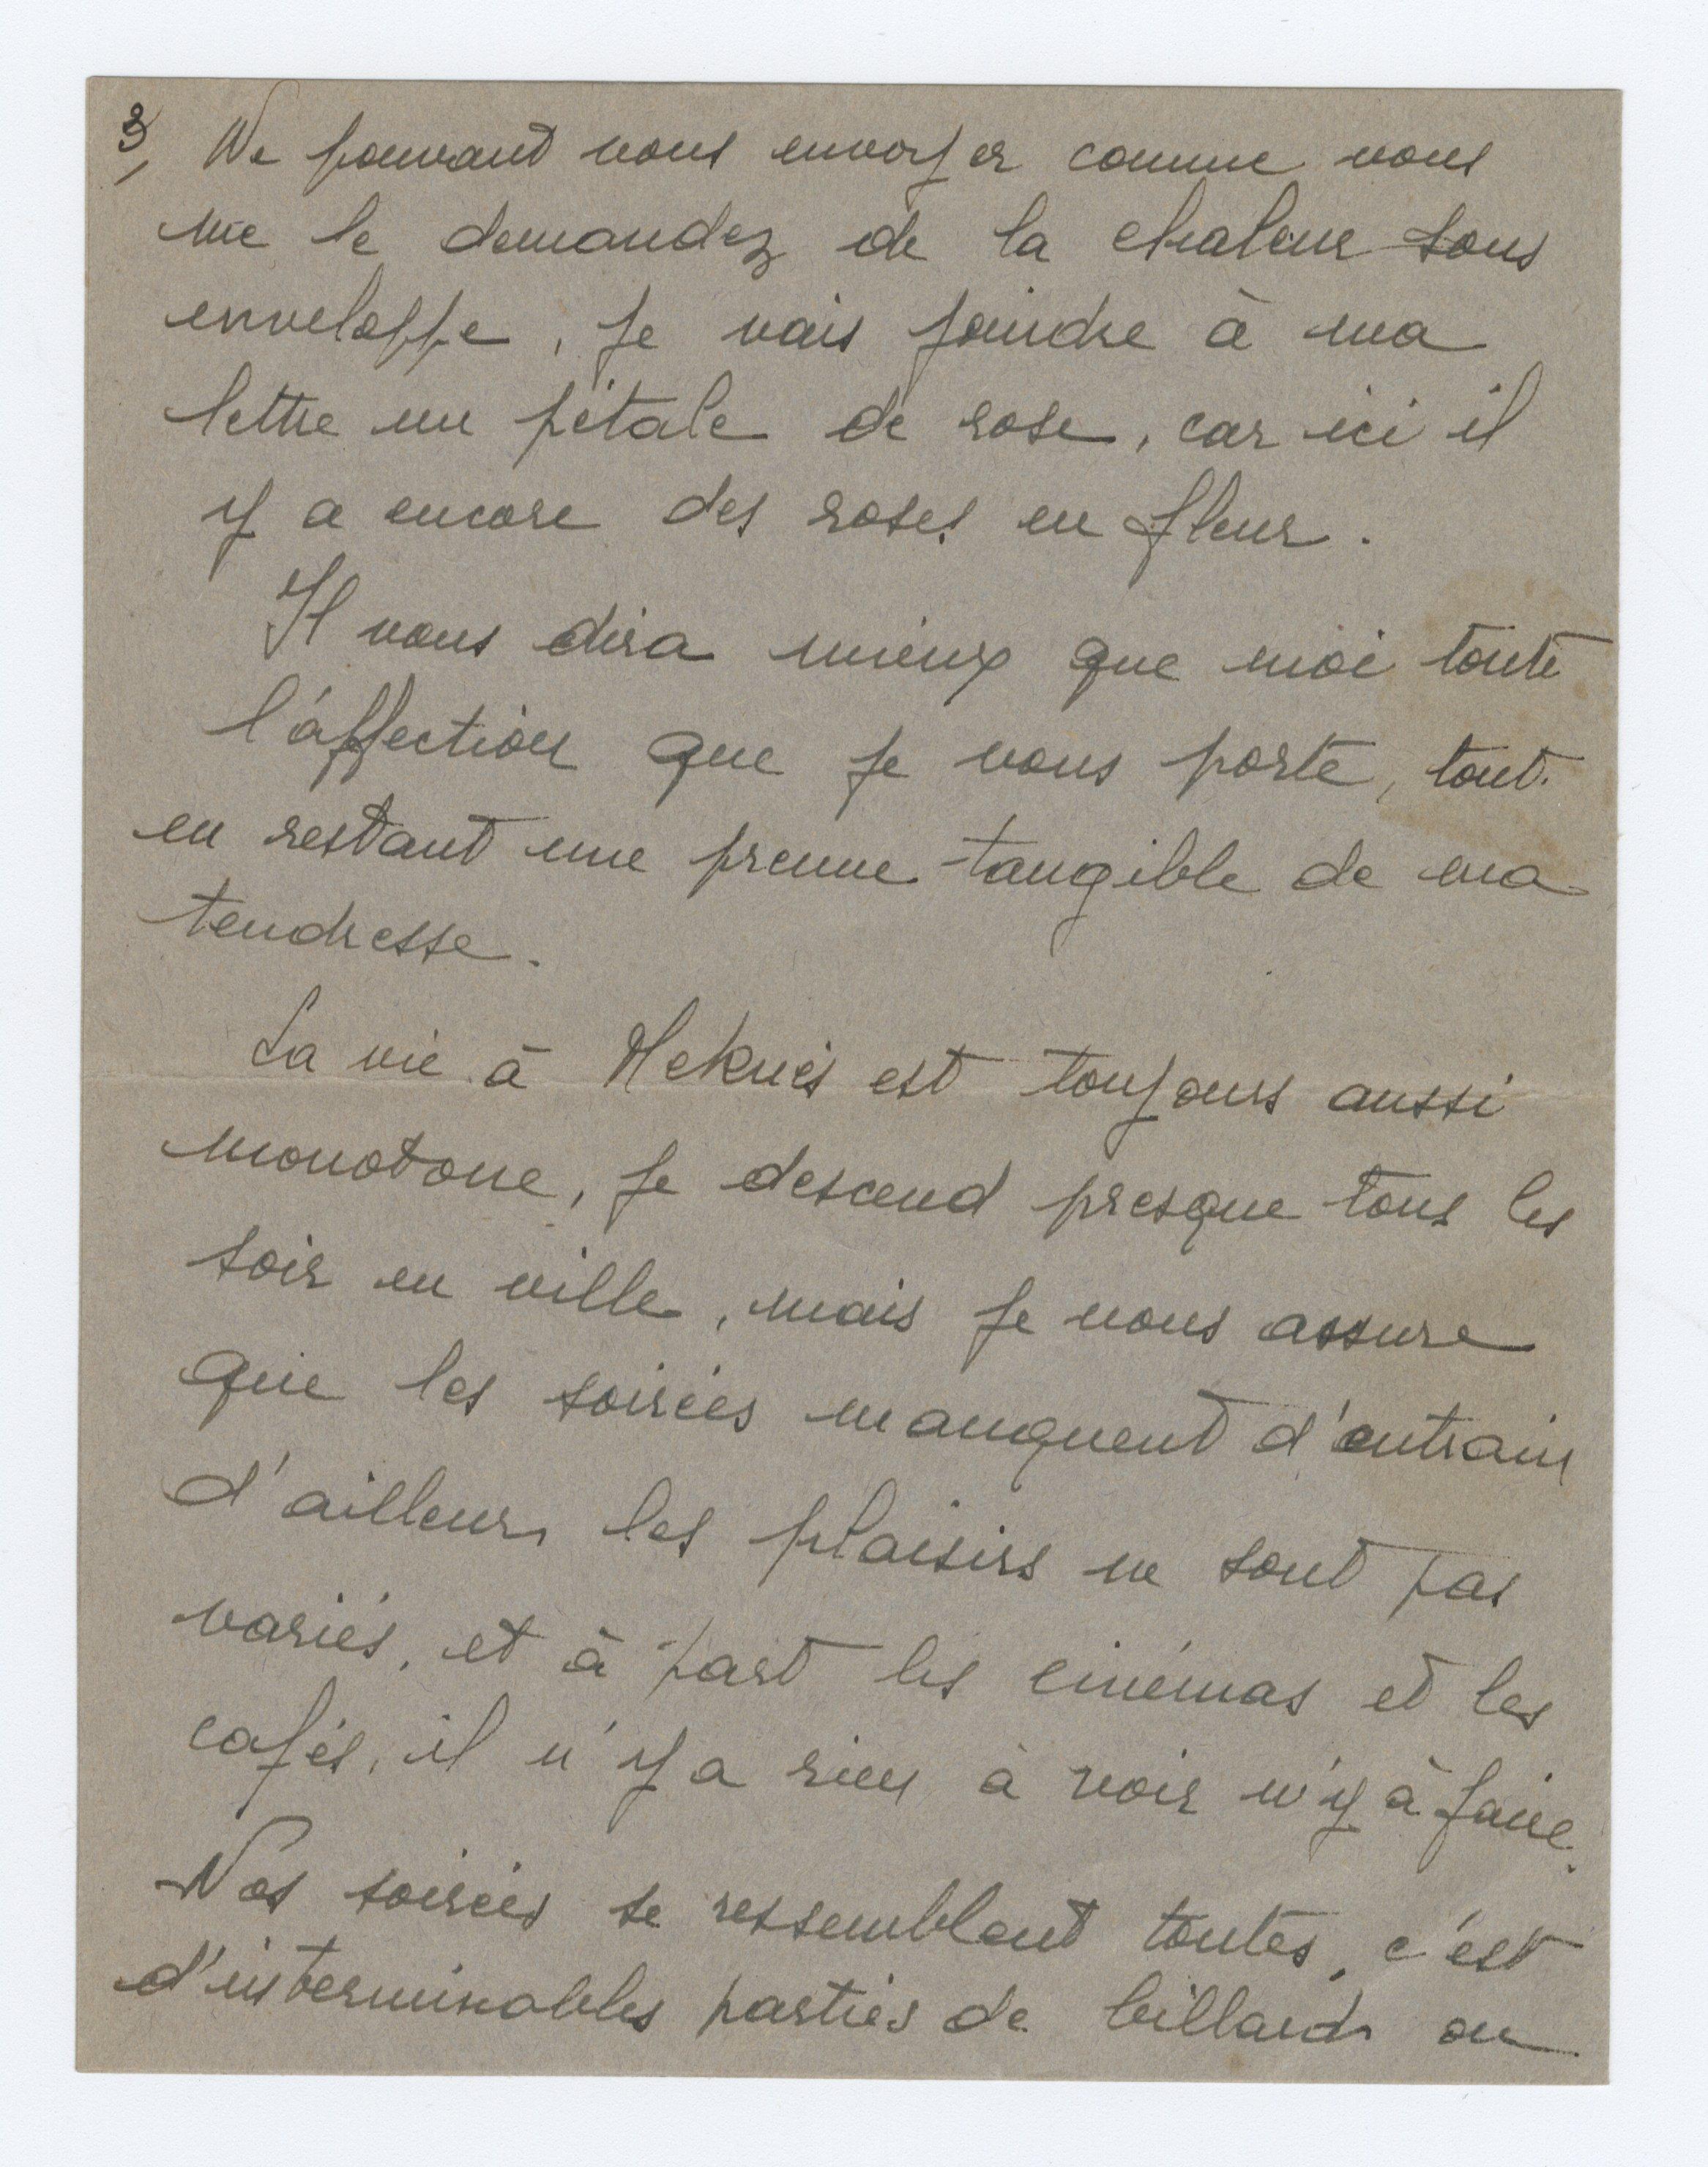 3, Ne pouvant vous envoyer comme vous
me le demandez de la chaleur sous
enveloppe, je vais joindre à ma
lettre un pétale de rose, car ici il
y a encore des roses en fleur.
Il vous dira mieux que moi toute
l'affection que je vous porte, tout
en restant une preuve tangible de ma
tendresse.
La vie à Meknès est toujours aussi
monotone, je descend presque tous les
soir en ville, mais je vous assure
que les soirées manquent d'entrain
d'ailleurs les plaisirs ne sont pas
variés, et à part les cinémas et les
cafés, il n'y a rien à voir n'y à faire.
Nos soirées se ressemblent toutes, c'est
d'interminables parties de billards ou